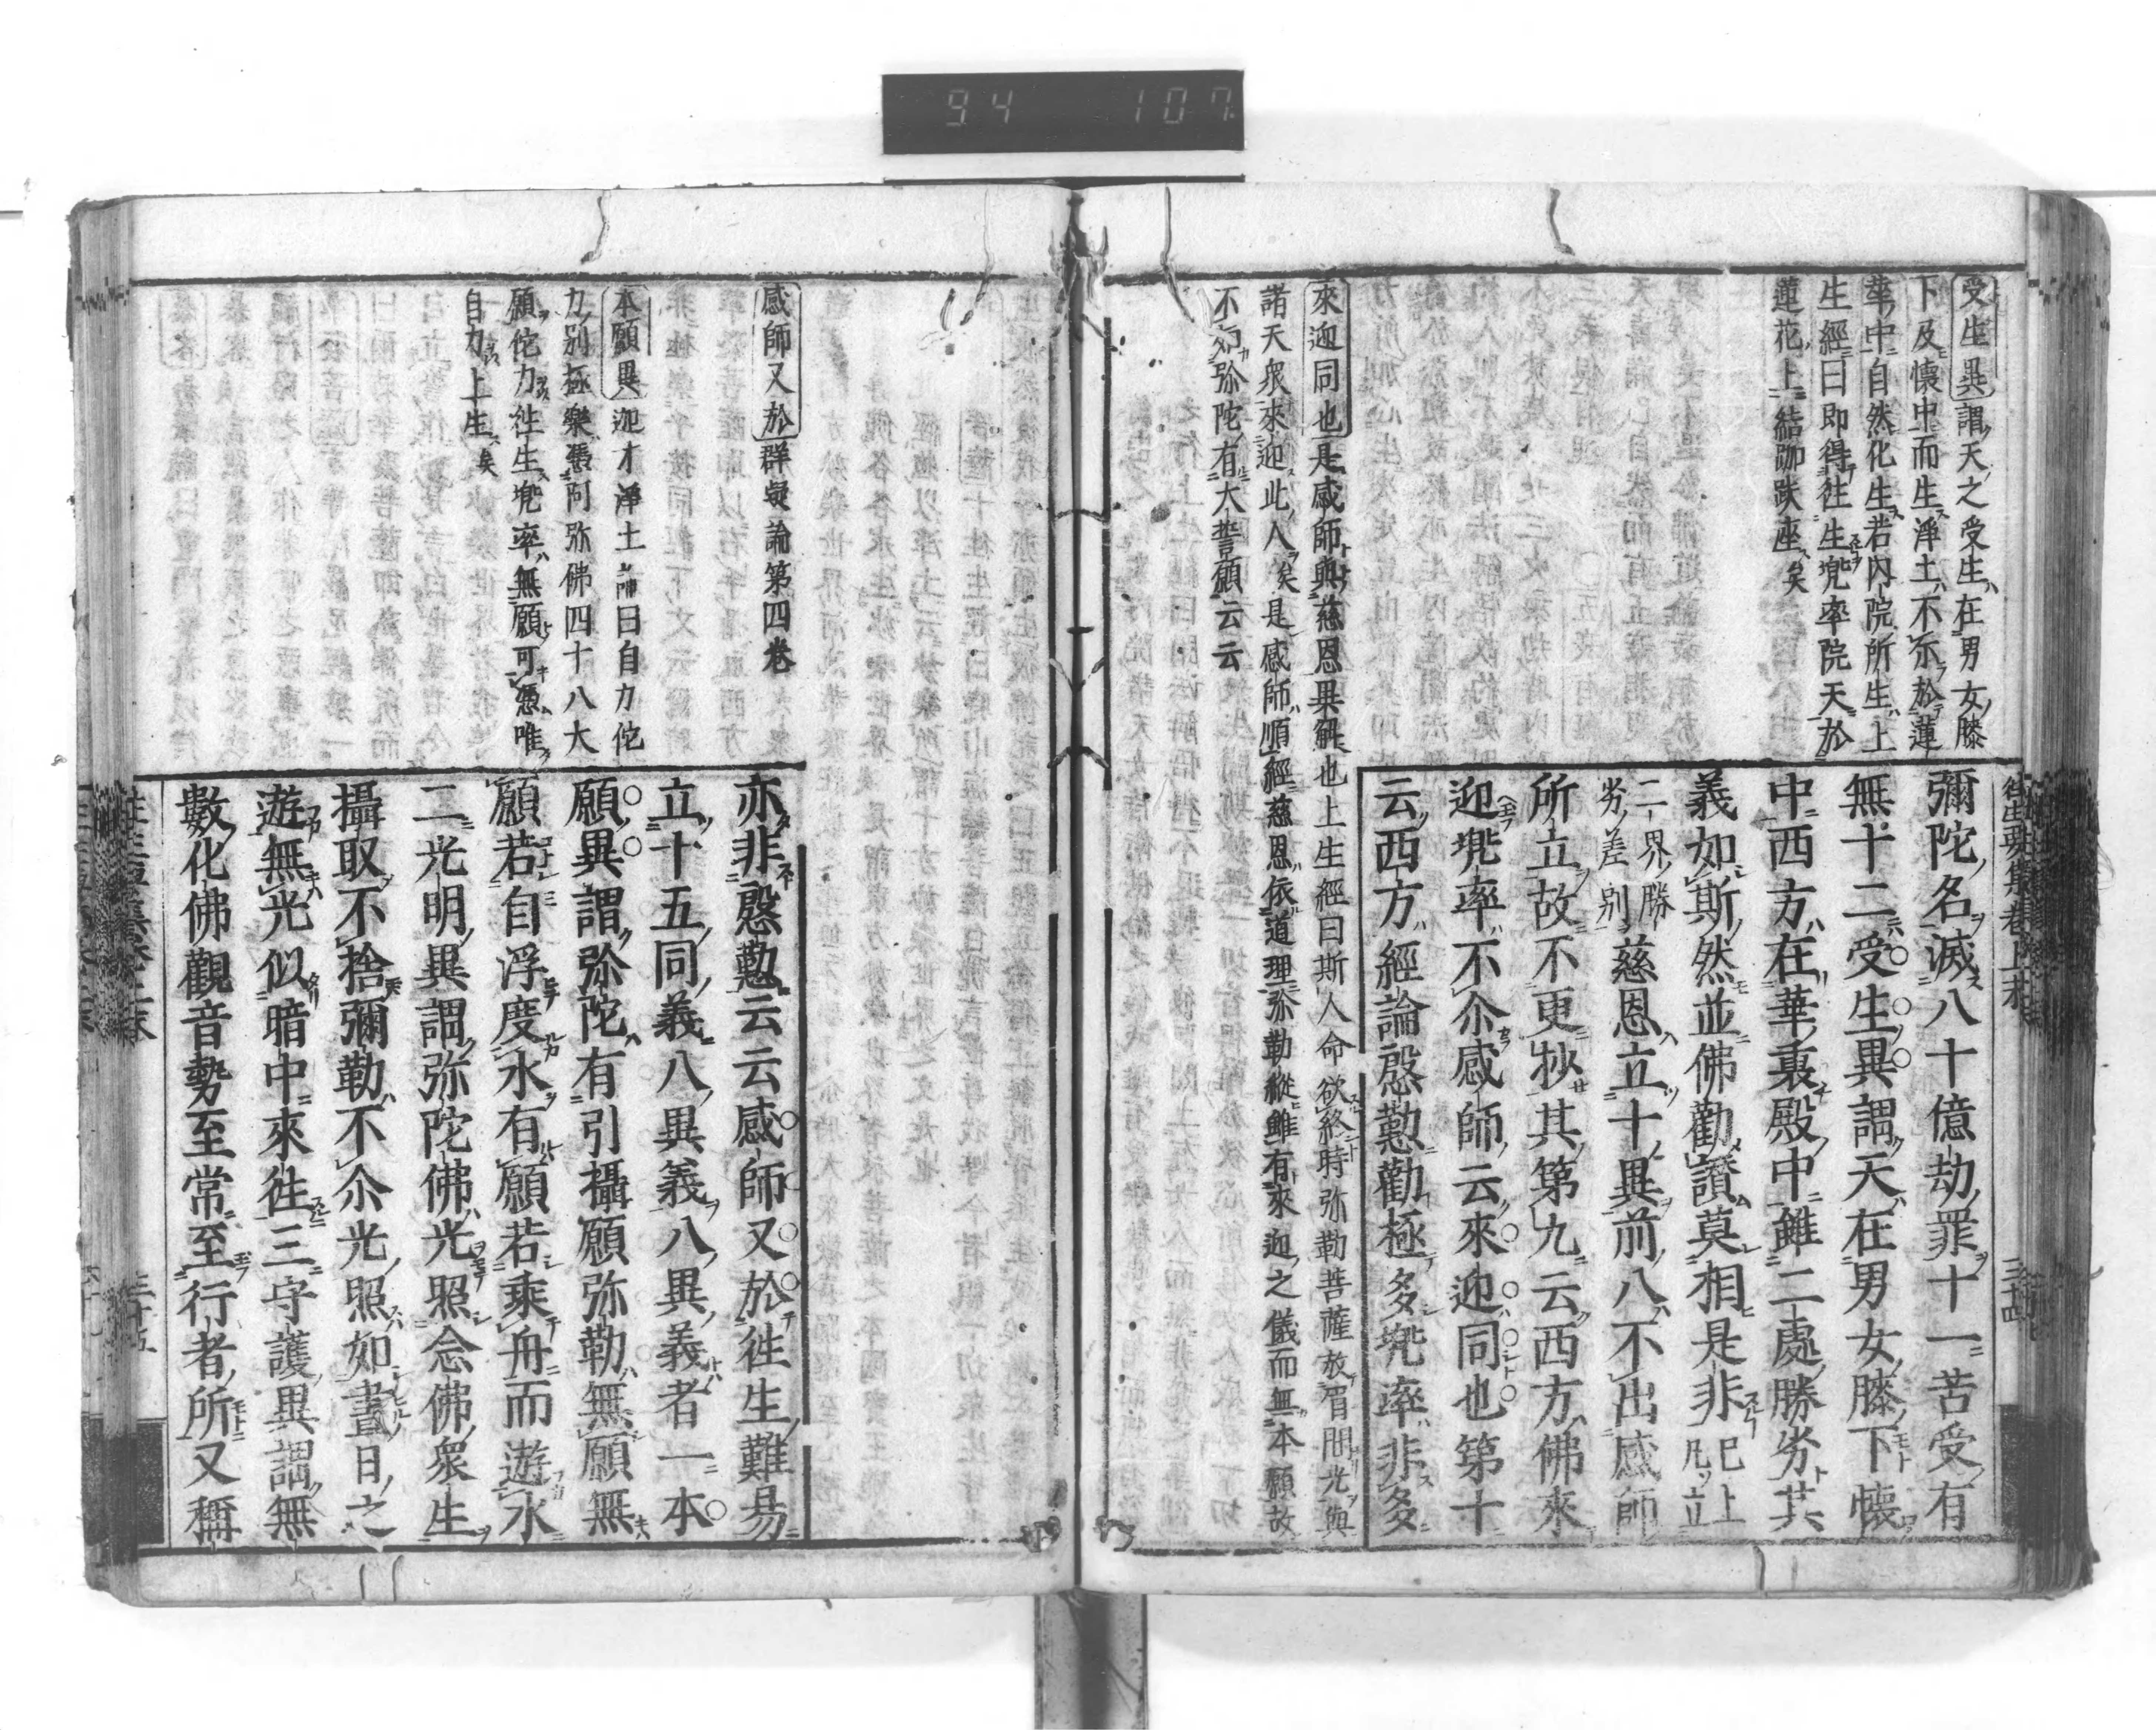 94 107
受生異謂天之受生在男女膝
下及懷中而生淨土不尓於蓮
華中自然化生若内院所生上
生經曰即得往生兜率院天於
蓮花上結跏趺座矣
往生要集卷上末
三十四
彌陀名滅八十億劫罪十一苦受有
無十二受生異謂天在男女膝下懷
中西方在華裏殿中雖二處勝劣其
義如斯然並佛勸讃莫相是非已上凡立
二界勝劣差別慈恩立十異前八不出感師
所立故不更抄其第九云西方佛來
迎兜率不尓感師云來迎同也第十
云西方經論慇懃勸極多兜率非多
來迎同也是感師與慈恩異解也上生經曰斯人命欲終時弥勒菩薩放眉間光與
諸天衆來迎此人矣是感師順經慈恩依道理弥勒縱雖有來迎之儀而無本願故
不如弥陀有大誓願云云
感師又於群疑論第四卷
本願異迦才淨土論曰自力佗
力別極樂憑阿弥佛四十八大
願佗力往生兜率無願可憑唯
自力上生矣
亦非慇懃云云感師又於往生難易
立十五同義八異義八異義者一本
願異謂弥陀有引攝願弥勒無願無
願若自浮度水有願若乘舟而遊水
二光明異謂弥陀佛光照念佛衆生
攝取不捨彌勒不尓光照如晝日之
遊無光似暗中來往三守護異謂無
數化佛觀音勢至常至行者所又稱